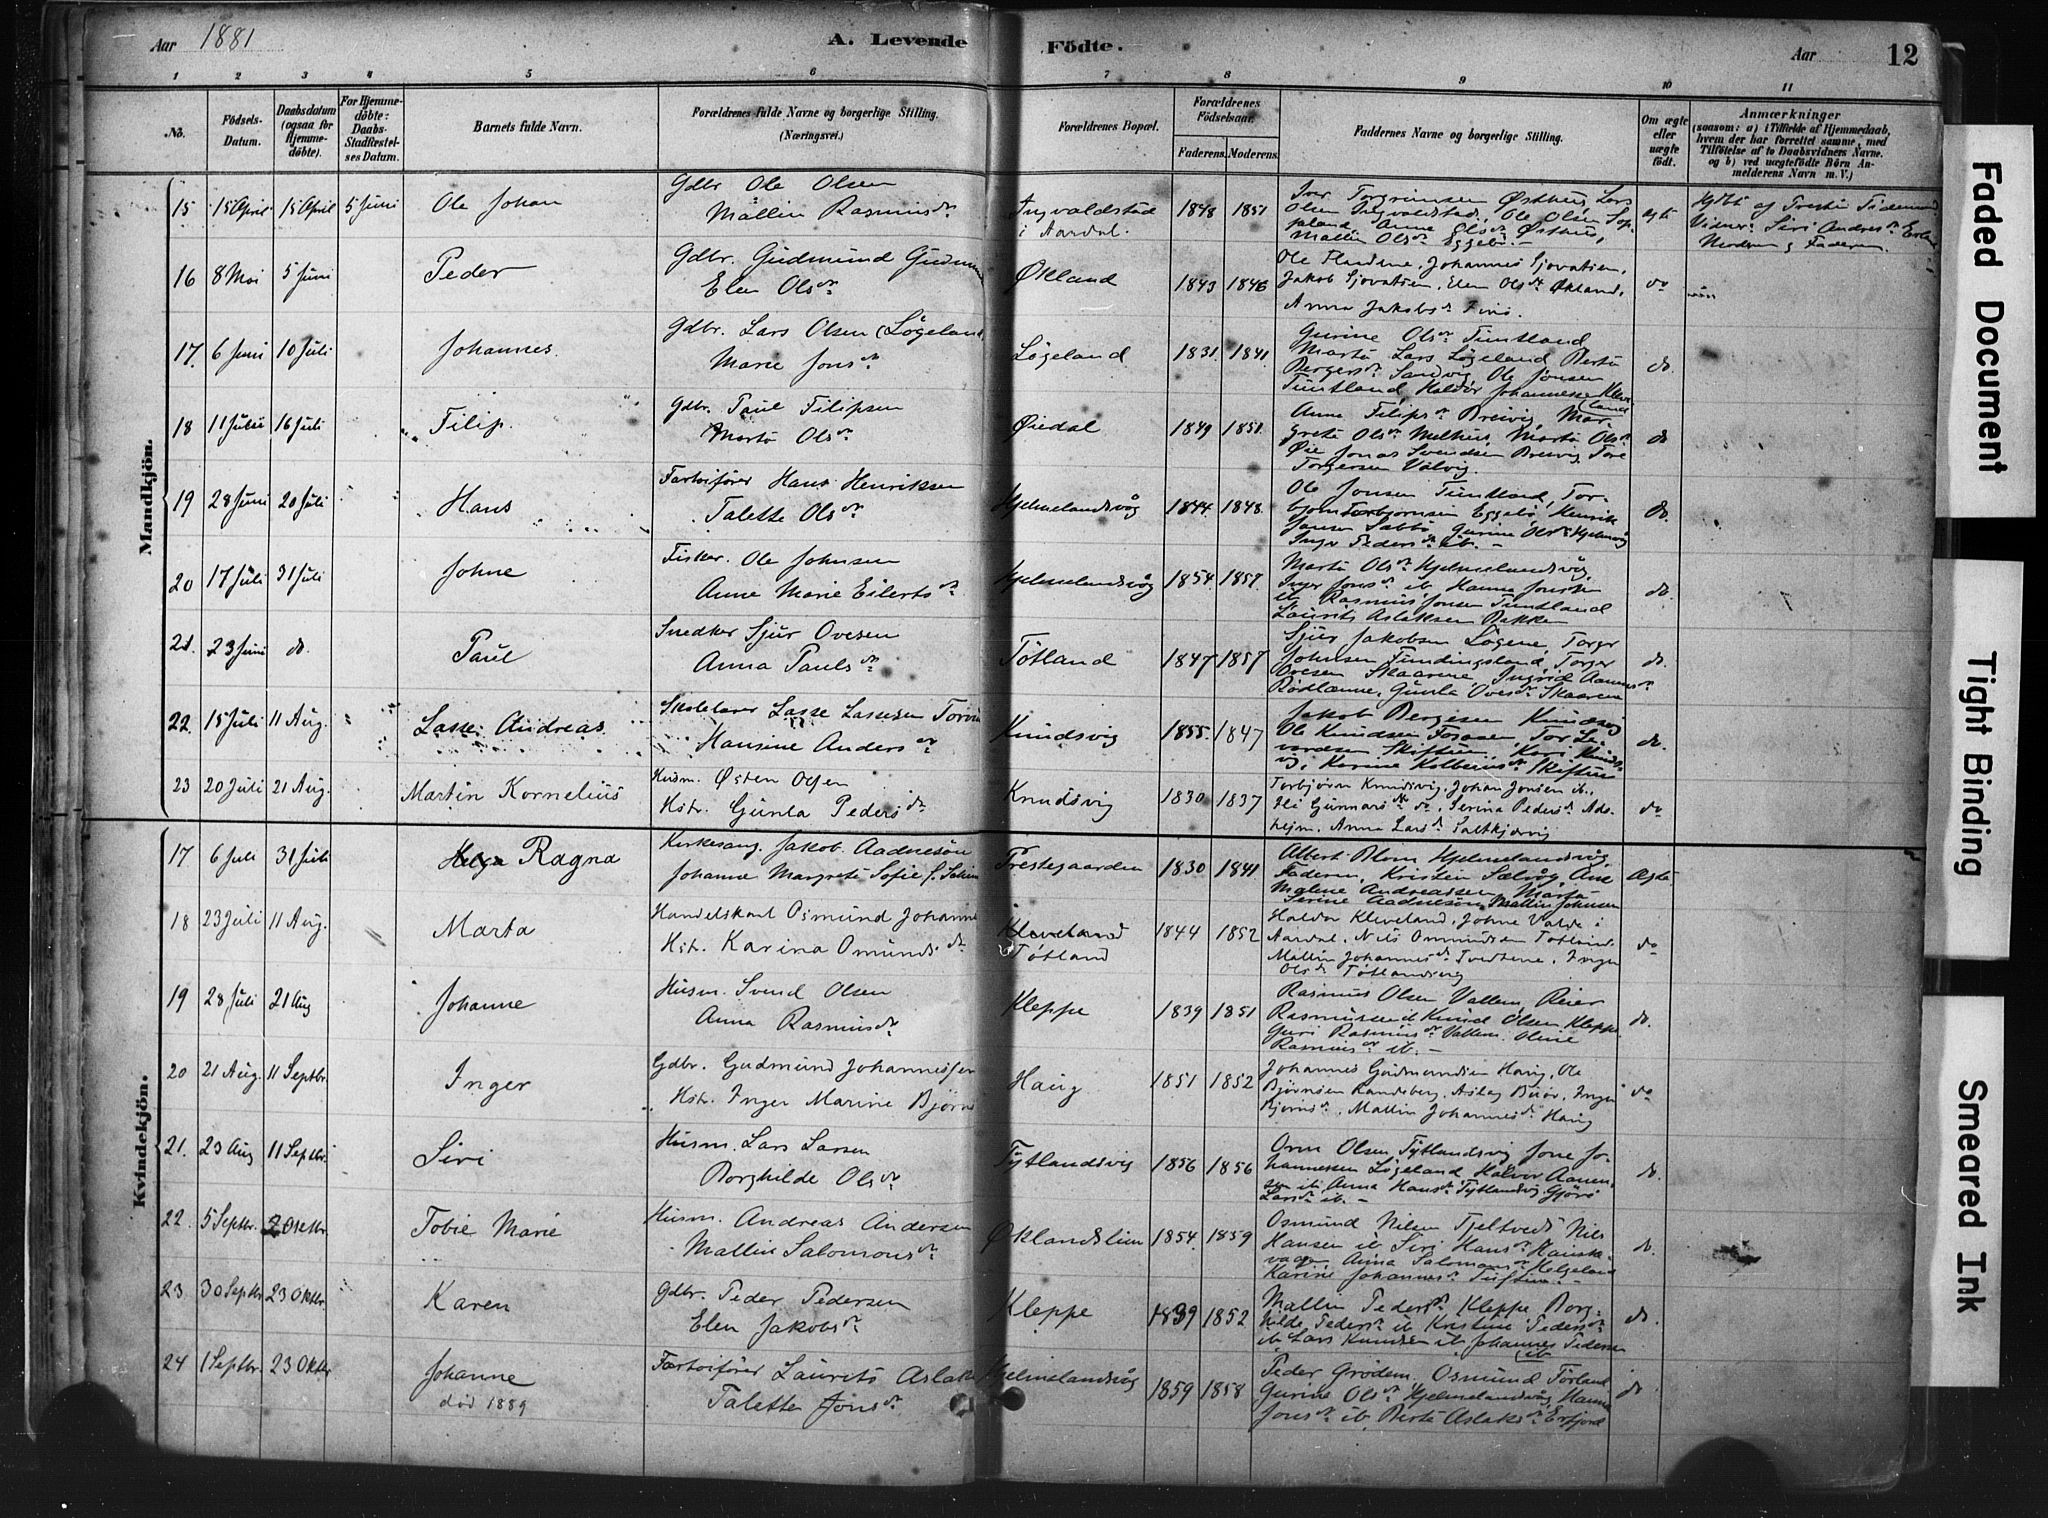 Aar 1881 A. Levende Födte. Aar 12
1 2 3 4 5 6 7 8 9 10 11
No. Födsels-Datum. Daabsdatum (ogsaa for Hjemme-döbte). For Hjemme-döbte: Daabs-Stadfæstel-ses Datum. Barnets fulde Navn. Forældrenes fulde Navne og borgerlige Stilling. (Næringsvei.) Forældrenes Bopæl. Forældrenes Födselsaar. Faderens. Moderens. Faddernes Navne og borgerlige Stilling. Om ægte eller uægte födt. Anmærkninger (saasom: a) i Tilfælde af Hjemmedaab, hvem der har forrettet samme, med Tilföielse af to Daabsvidners Navne. og b) ved uægtefödte Börn An-melderens Navn m. V.)
Mandkjön.
15 15 April 15 April 5 Juni Ole Johan Gdbr Ole Olsen
Mallin Rasmusdr Ingvaldstad i Aardal. 1848 1851 Iver Torgrimsen Østhus, Lars
Olsen Ingvaldstad, Ole Olsen
Anne Olsdr Østhus,
Mallin Olsdr Eggebö. ægte
16 8 Mai 5 Juni Peder Gdbr. Gudmund
Elen Olsdr Økland 1843 1846 Ole Johannes
Jakob Elen Olsdr Økland,
Anna Jakobsdr do
17. 6 Juni 10 Juli Johannes. Gdbr. Lars Olsen (Lögeland
Marie Jonsdr Lögeland 1831. 1841. Gurine Olsdr Tuntland
Marta Lars Lögeland Berta
Bergersdr Sandvig Ole Jonsen
Tuntland Haldor Johannessen Kleve-
land do.
18 11 Juni 16 Juli Filip. Gdbr. Paul Filipsen
Marta Olsdr Øiedal 1849 1851. Anna Filipsdr Breivig, Mar-
greta Olsdr Melhus, Marta Olsdr
Øie Jonas Svendsen Breivig, Tore
Torgersen Valvig. do
19 28 Juni 20 Juli Hans Fartøifører Hans Henriksen
Talette Olsdr Hjelmelandsvåg 1844. 1848. Ole Jonsen Tuntland, Tor-
bjørn Torbjørnsen Eggebö, Henrik
Jansen Sæbbö Gurine Olsdr Hjelmsvåg
Inger Pedersdr ib. do.
20 17 Juli 31 Juli Johne Fisker. Ole Johnsen
Anne Marie Eilertsdr Hjelmelandsvåg 1854. 1857. Marta Olsdr Hjelmelandsvåg,
Inger Jonsdr ib Hanna Jonsdr
ib Rasmus Jonsen Tuntland
Laurits Aslaksen Bakken do.
21. 23 Juni do. Paul Snedker Sjur Ovesen
Anna Paulsdr Tøtland 1847 1857 Sjur Jakobsen Lögene, Torger
Johnsen Fundingsland, Torger
Ovesen Skaarene, Ingrid
Rødlanne, Gunla Ovesdr Skaarene do.
22. 15 Juli 11 Aug. Lasse Andreas. Skolelærer Lasse Lassesen
Hansine Andersdr Knudsvig 1855. 1847 Jakob Bergesen Knudsvig
Ole Knudsen Tor
Skiftun, Kari Knuds-
vig, Karine Kolbeinsdr Skiftun do.
23 20 Juli 21 Aug. Martin Kornelius Husm. Østen Olsen
Hstr. Gunla Pedersdr Knudsvig 1830 1837 Torbjørn Knudsvig, Johan Jonsen ib.,
Gunnarsdr do, Serina Pedersdr
Anna Larsdr do
Kvindekjön.
17 6 Juli 31 Juli Helga Ragna Kirkesang. Jakob Aadnesøn
Johanne Margrete Sofie f. Præstegaarden 1830 1841 Albert Blom Hjelmelandsvåg,
Faderen, Kristen Ane
Malene Andreassen, Marta
Serine Aadnesøn, Mallin Johnsen Ægte
18 23 Juli 11 Aug. Marta Handelskarl Osmund
Hstr. Karina Omundsdr Kleveland
Tøtland 1844 1852 Haldor Kleveland, Johne Valde i
Aardal, Nils Ommundsen Tøtland
Mallin Johannesdr Tvedtene, Inger
Olsdr Tøtlandsvig do
19 28 Juli 21 Aug Johanne Husm. Svend Olsen
Anna Rasmusdr Kleppe 1839 1851 Rasmus Olsen Vallem, Reier
Rasmussen Knud Olsen Kleppe
Guri Rasmusdr Vallem. Oline
Rasmusdr ib. do.
20 21 Aug. 11 Septbr. Inger Gdbr. Gudmund Johannessen
Hstr. Inger Marine Haug 1851 1852 Johannes Gudmundsen Haug, Ole
Bjørnsen Randeberg, Aslag Inger
Bjørnsdr, Mallin Johannesdr Haug do
21. 23 Aug 11 Septbr. Siri Husm. Lars Larsen
Borghilde Olsdr Tytlandsvig 1856 1856 Orm Olsen Tytlandsvig Jone Jo-
hannessen Lögeland Halvor Aamun-
sen ib, Anna Hansdr Tytlandsvig Gjöri
Larsdr ib. do.
22. 5 Septbr. 2 Tobie Marie Husm. Andreas Andersen
Mallin Salomonsdr Øklandslien 1854. 1859 Osmund Nilsen Tjeltveds Nils
Hansen ib Siri Hansdr
Anna Salomonsdr Helgeland
Karine Johannesdr Tuftene do.
23 30 Septbr 23 Oktbr. Karen Gdbr. Peder Pedersen
Elen Jakobsdr Kleppe 1839 1852 Mallin Pedersdr Kleppe Borg-
hilde Pedersdr ib Kristine Pedersdr
ib Lars Knudsen ib Johannes Pedersen
ib do.
24 1 Septbr. 23 Oktbr Johanne
død 1889 Fartøifører Laurits
Talette Jonsdr Hjelmelandsvåg 1859 1858 Peder Grödem, Osmund Förland
Gurine Olsdr Hjelmelandsvåg, Hanna
Jonsdr ib, Berta Aslaksdr Erfjord do
Faded Document
Tight Binding
Smeared Ink